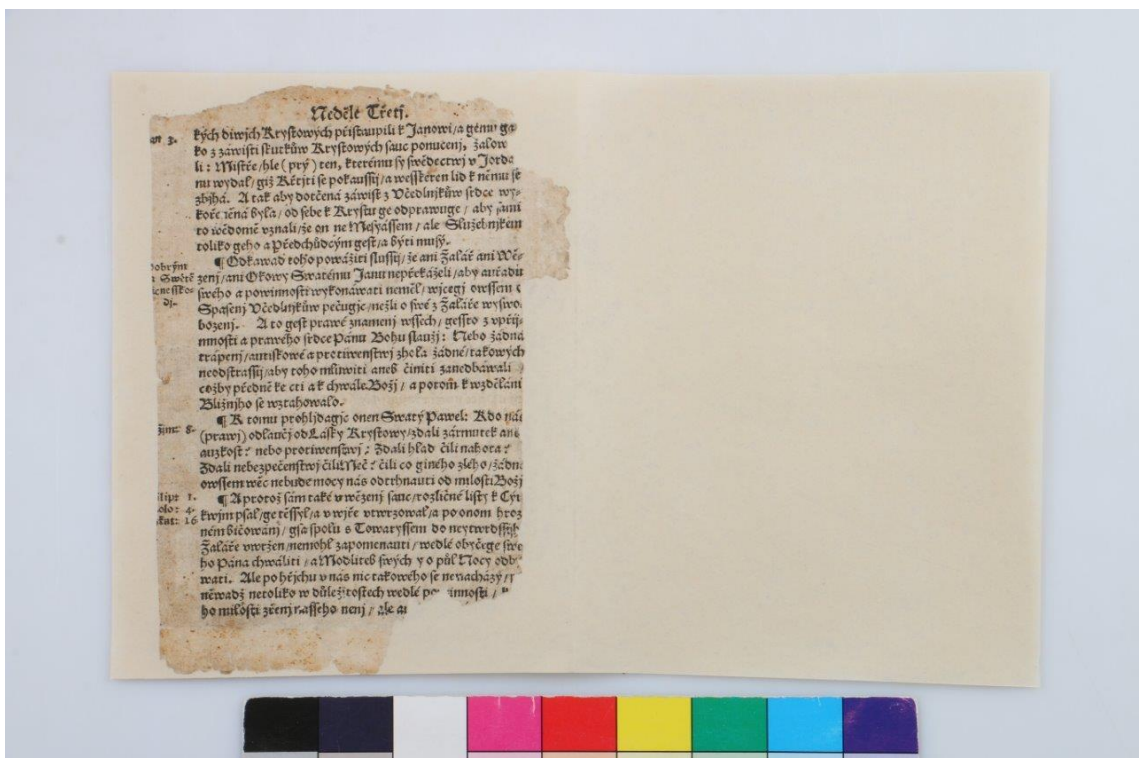 Neděle Třetj.
kých diwjch Krystowých přistaupili k Janowi/a gemu ga-
an 3.
ko z záwisti skutkůw Krystowých sauc ponuceni, žalow
li: Mistře/hle (prý) ten, kterému sy swědectwj v Jorda
nu wydal/giž Křtjti se pokaussij/a wesskeren lid k němu se
zbjhá. A tak aby dotčená záwist z Včedlnjkůw srdce wy-
kořeněná byla/od sebe k Krystu ge odprawuge/aby sami
to wědomě vznali/že on ne Mesyássem/ale Služebnjkem
toliko geho a Předchůdcým gest/a býti musý.
¶ Odkawad toho powážiti slussij/že ani Žalář ani Wě-
zenj/ani Okowy Swatému Janu nepřekáželi/aby auřadu
swého a powinnosti wykonáwati neměl/wjcegj owssem o
Spasenj Včedlnjkůw pečugjc/nežli o swé z Žaláře wyswo-
bozenj. A to gest prawé znamenj wssech/gessto z vpřij-
mnosti a prawého srdce Pánu Bohu slaužj: Nebo žádná
trápenj/autiskowé a protiwenstwj zhola žádné/takowých
neodstrassij/aby toho mluwiti aneb činiti zanedbáwali
cožby předně ke cti a k chwále Božj/a potom k wzdělánj
Bližnjho se wztahowalo.
dobrým
Swětě
dj.
¶ K tomu prohljdagjc onen Swatý Pawel: Kdo nás
(prawj) odlaučj od Lásky Krystowy/zdali zármutek ane
auzkost? nebo protiwenstwj? Zdali hlad čili nahota?
Zdali nebezpečenstwj čili Meč? čili co giného zlého/žádná
owssem wěc nebude mocy nás odtrhnauti od milosti Božj
Žjm: 8.
¶ A protož sám také v wězenj sauc/rozličné listy k Cýr
kwjm psal/ge těssyl/a v wjře vtwrzowal/a po onom hroz
ném bičowánj/gsa spolu s Towaryssem do neytwrdssýh
Žaláře vwržen/nemohl zapomenauti/wedlé obyčege swé
ho Pána chwáliti/a Modliteb swých y o půl Nocy odb
wati. Ale pohřjchu v nás nic takowého se nenacházý/
něwadž netoliko w důležitostech wedlé po innosti/
ho milosti zřenj nasseho nenj/ale a
lipt 1.
olo: 4.
kut: 16